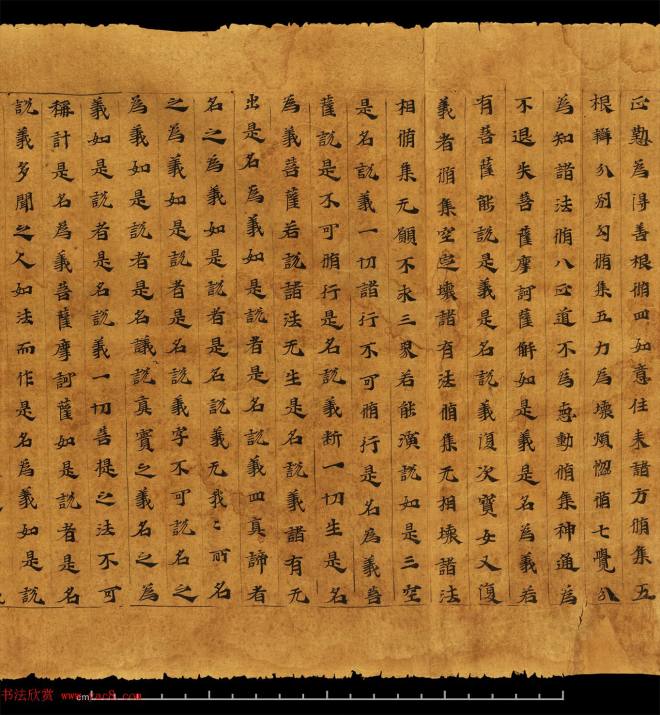 正懃為得善根脩四如意往来諸方脩集五
根辯分別勾脩集五力為壞煩惱脩七覺分
為知諸法脩八正道不為恵動脩集神通為
不退失菩薩摩訶薩解如是義是名為義若
有菩薩能說是義是名說義復次寶女又復
義者脩集空定壞諸有法脩集无相壞諸法
相脩集无願不求三界若能演說如是三空
是名說義一切諸行不可脩行是名為義菩
薩說是不可脩行是名說義断一切生是名
為義菩薩若說諸法无生是名說義諸有无
出是名為義如是說者是名說義四真諦者
名之為義如是說者是名說義无我〻所名
之為義如是說者是名說義字不可說名之
為義如是說者是名議說真實之義名之為
義如是說者是名說義一切菩提之法不可
稱計是名為義菩薩摩訶薩如是說者是名
說義多聞之人如法而作是名為義如是說
书法欣赏
cm